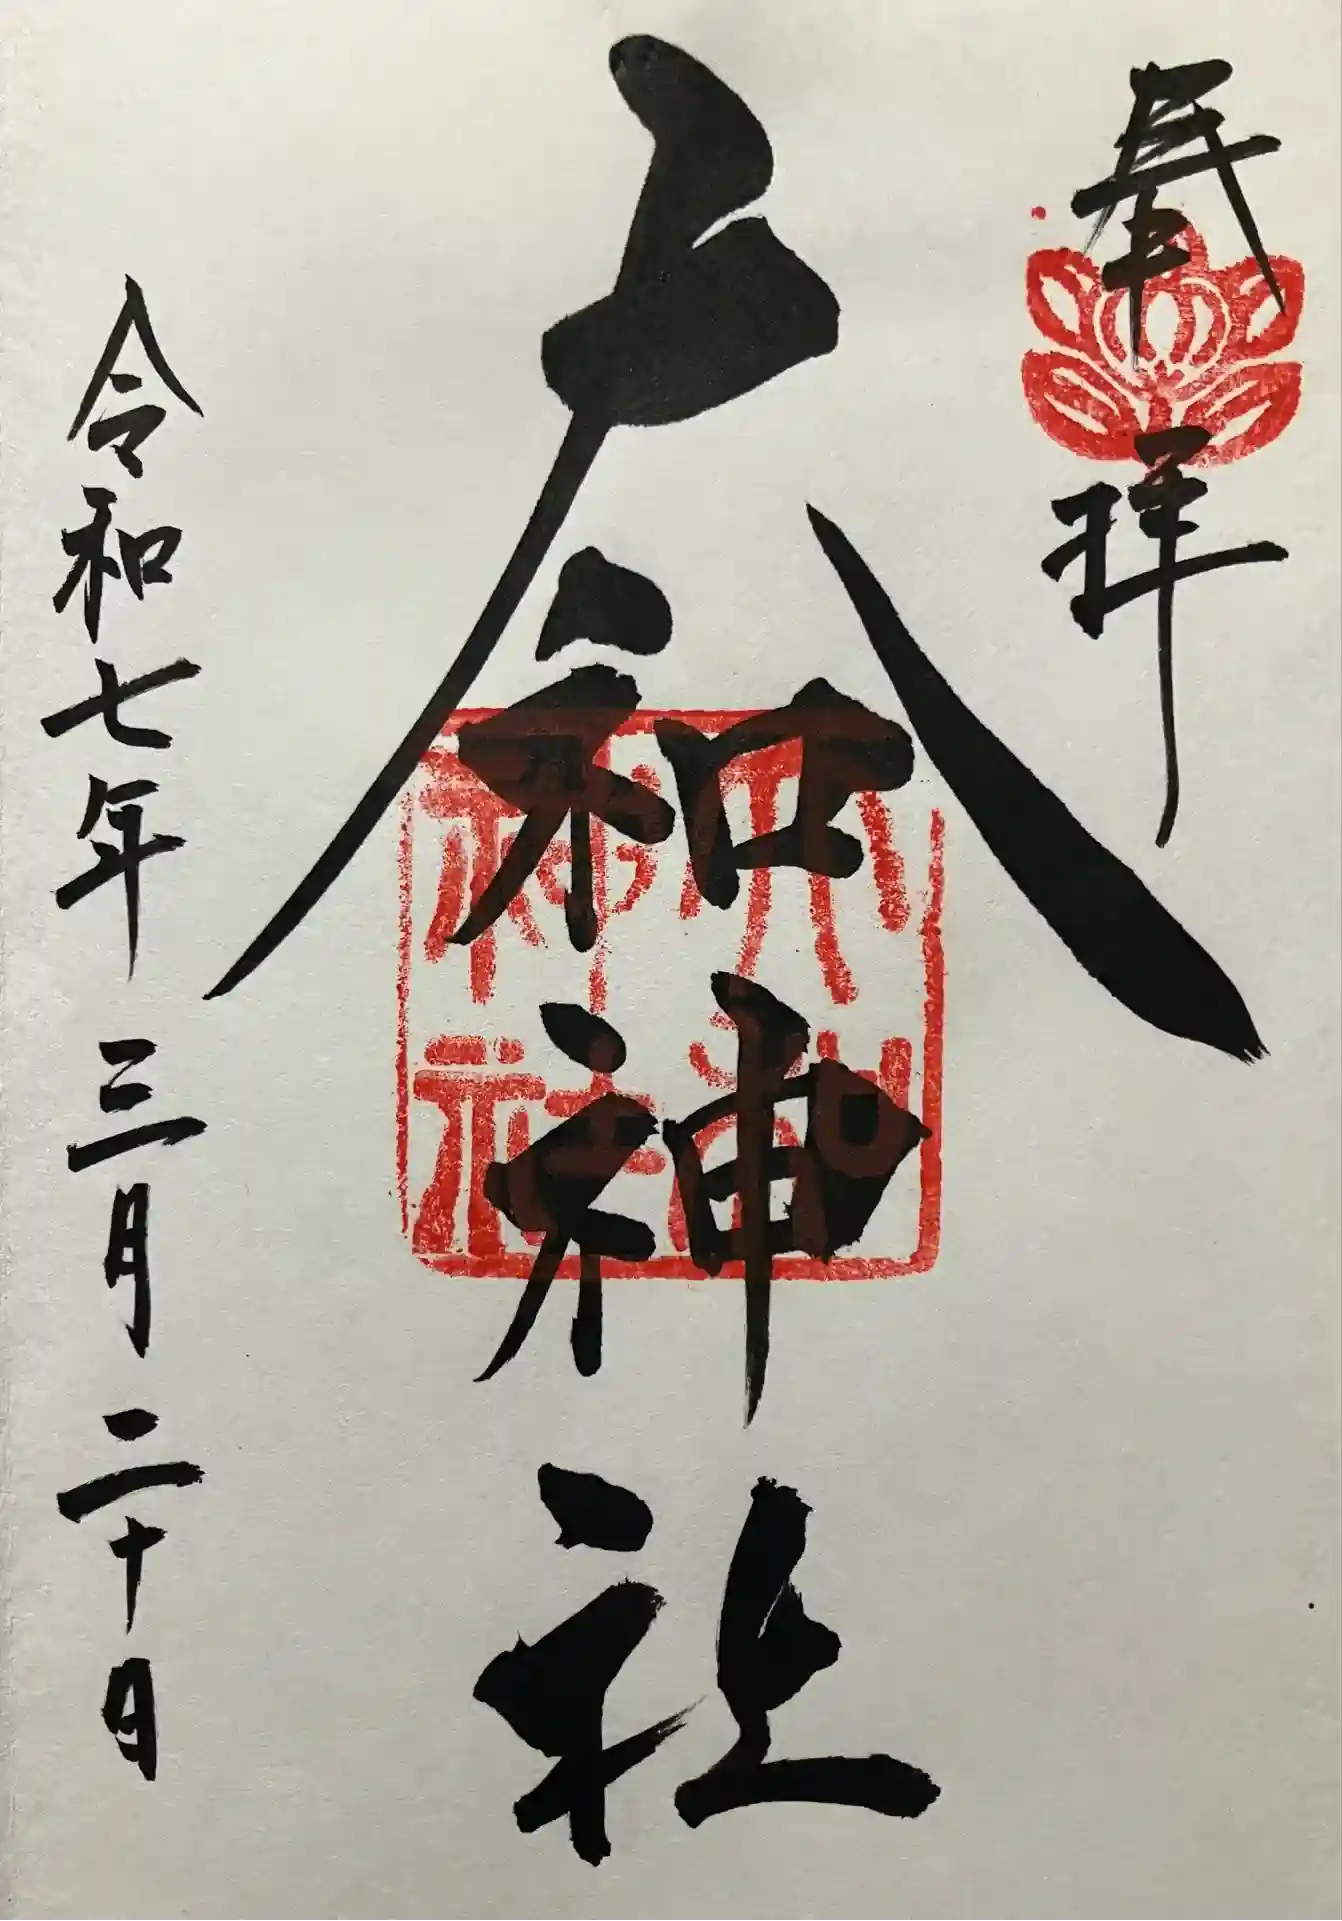 奉拝
大和神社
大和
神社
令和七年三月二十日